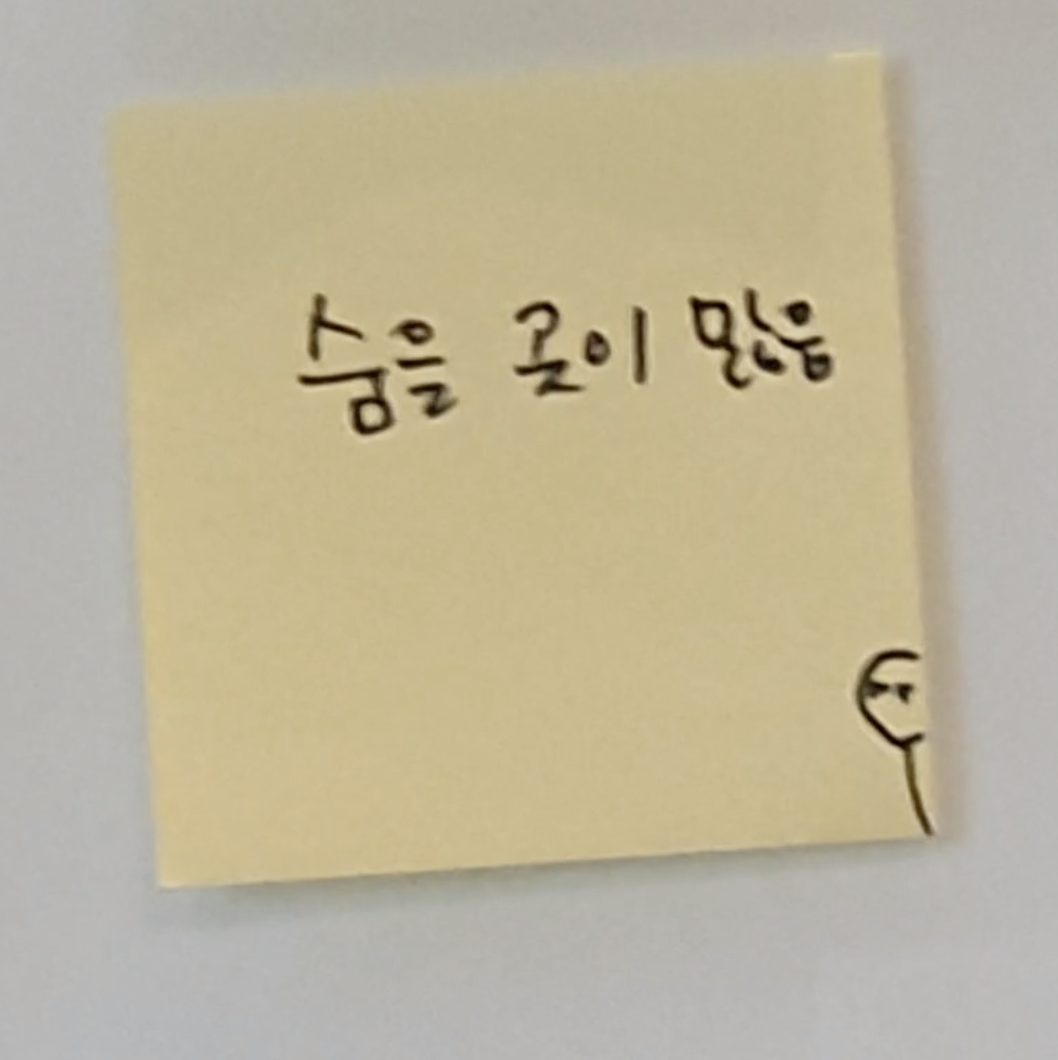 숨을 곳이 많음